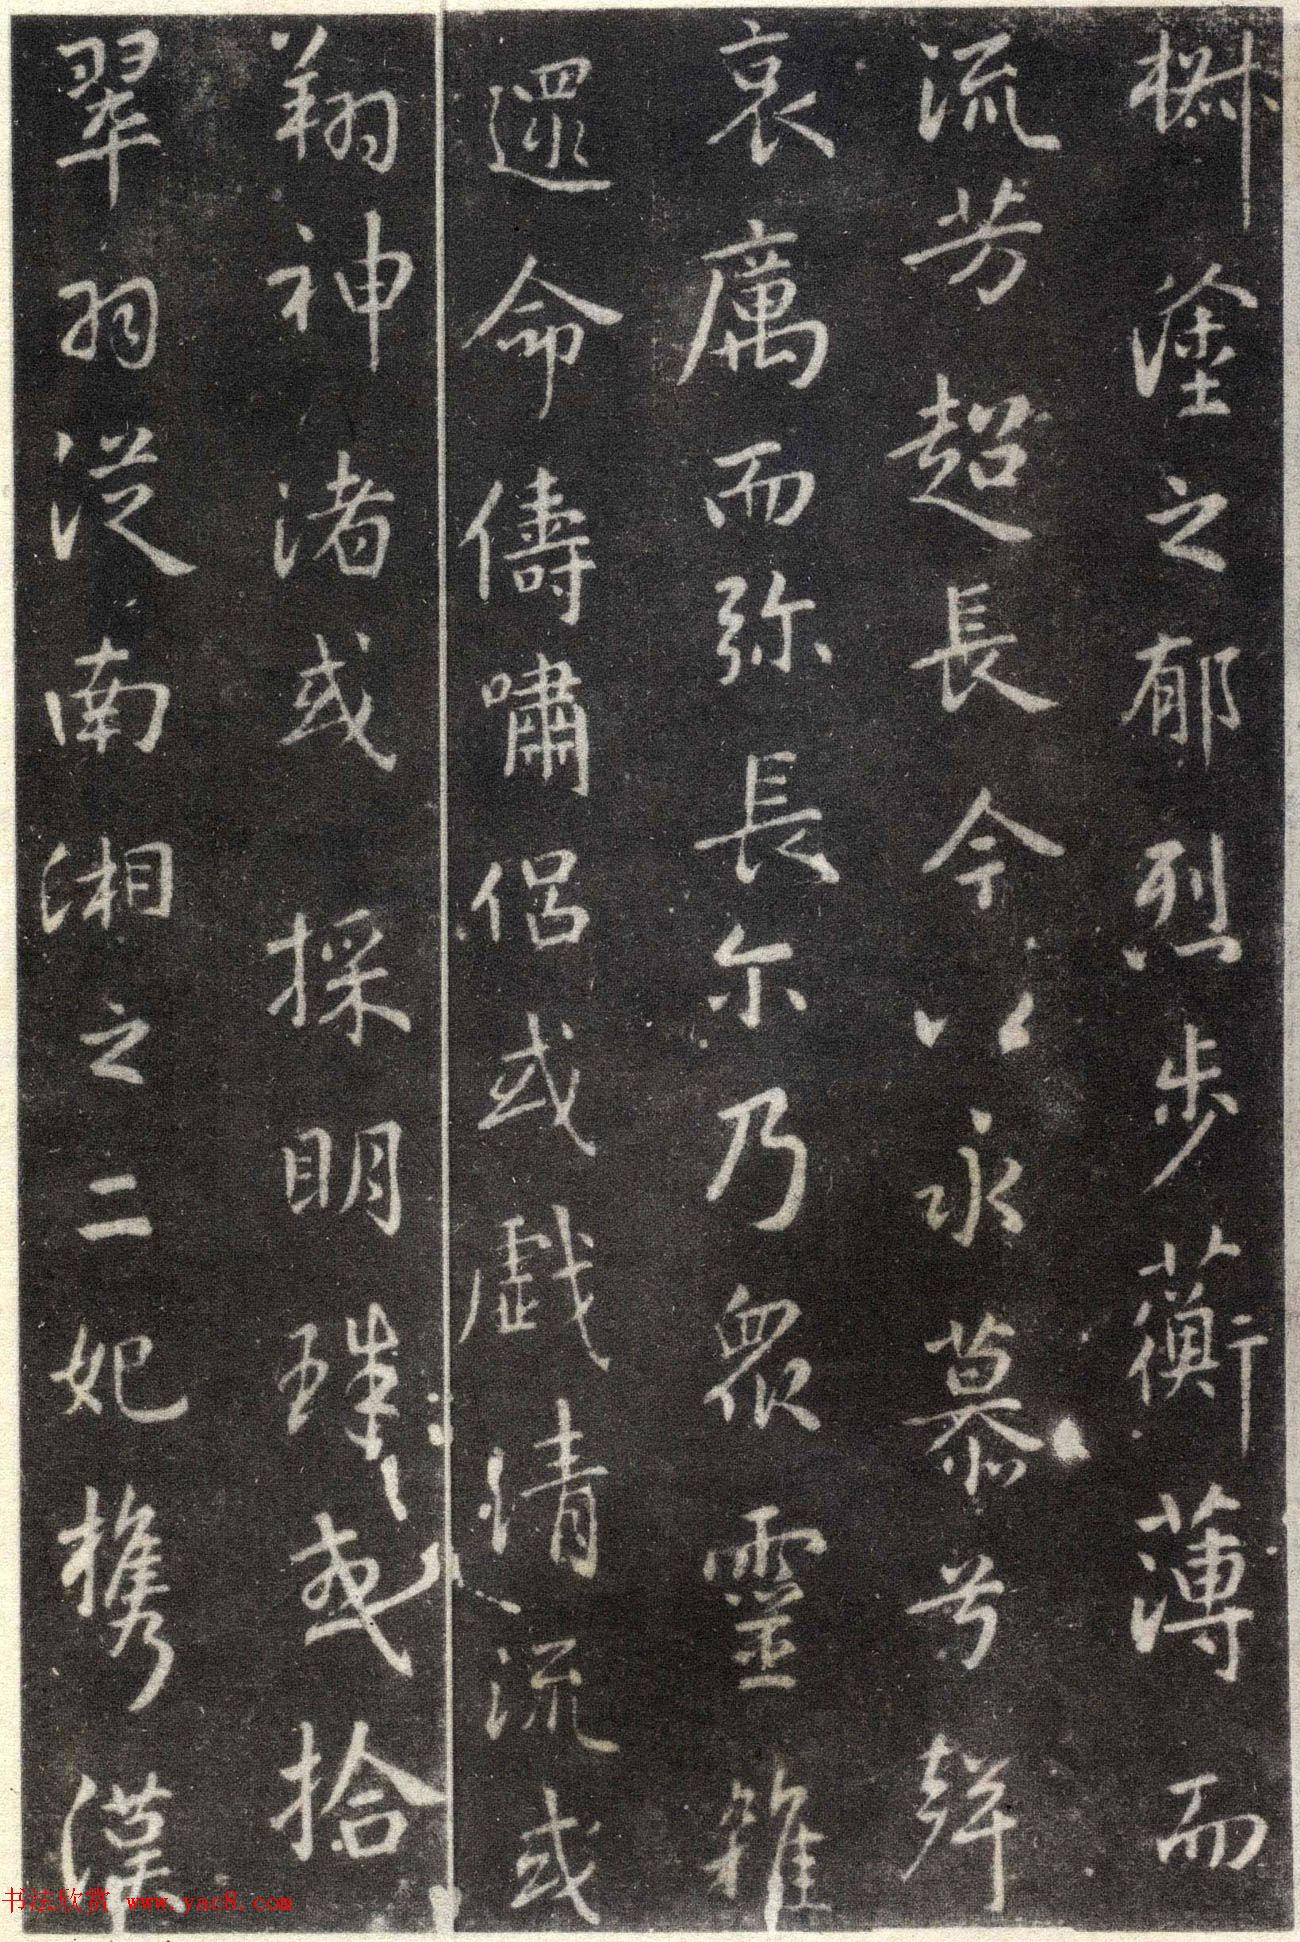 椒塗之郁烈步蘅薄而
流芳超長今以永慕兮聲
哀厲而弥長尔乃眾靈雜
遝命儔嘯侶或戲清流或
翔神渚或採明珠或拾
翠羽從南湘之二妃攜漢
书法欣赏 www.yac8.com